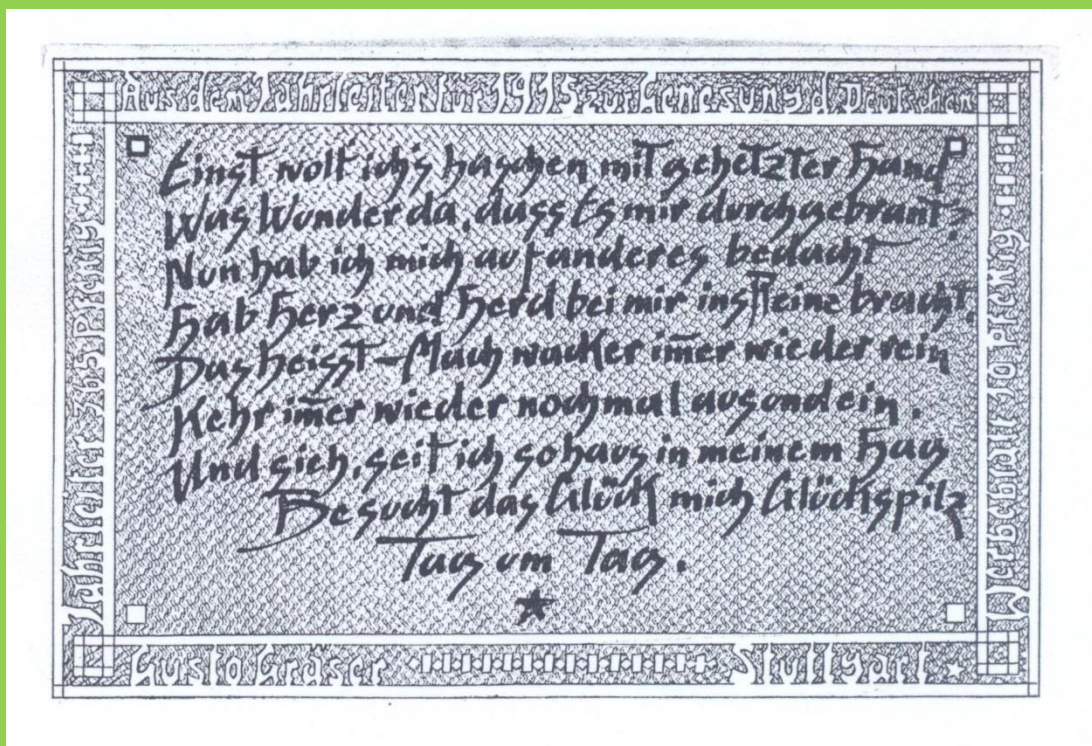 Aus dem Jahrleiter für 1915 zur Genesung d. Deutschen
Einst wollt ich's haschen mit gehetzter Hand
Was Wunder da, dass Es mir durchgebrant?
Nun hab ich mich auf anderes bedacht
Hab Herz und Herd bei mir ins Reine bracht.
Das heisst – Mach wacker im̄er wieder rein
Kehr im̄er wieder nochmal aus und ein.
Und sieh, seit ich so haus in meinem Hag
Besucht das Glück mich Glückspilz
Tag um Tag.
Jahrleiter 365 Pfenig
Gusto Gräser Stuttgart